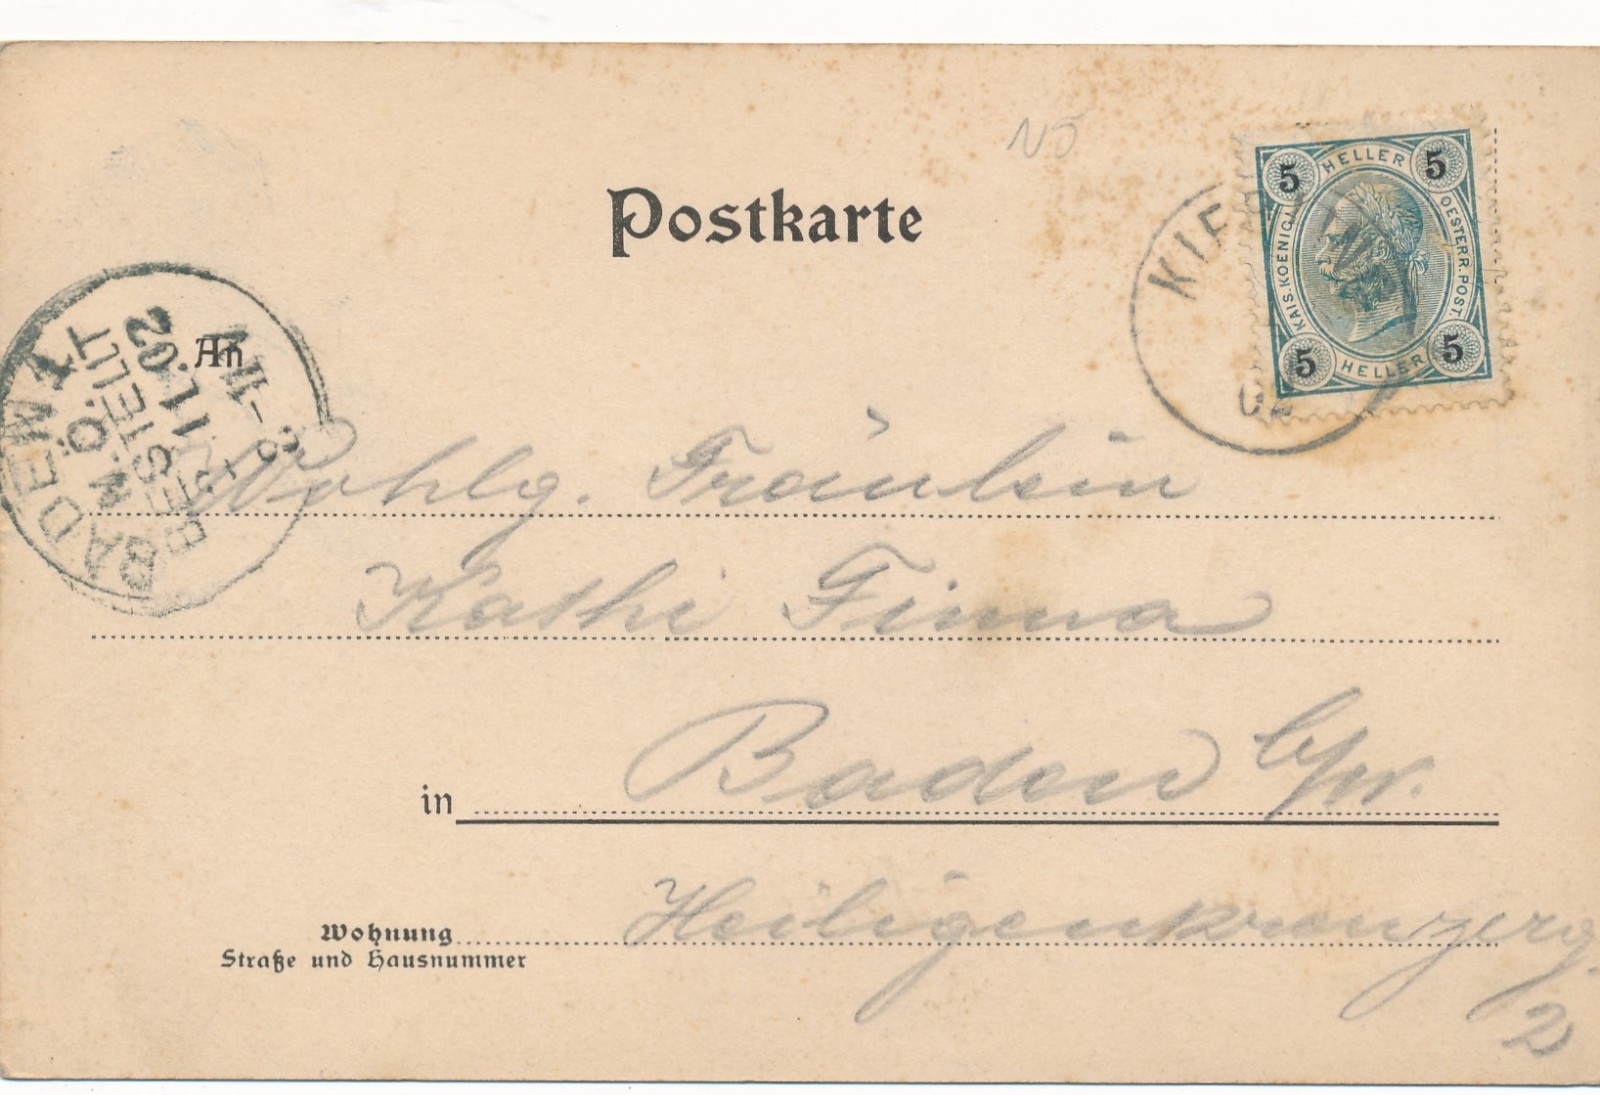 NÖ
Postkarte
5 HELLER 5
KAIS. KOENIGL.
OESTERR. POST.
5 HELLER 5
An
BADEN 1
N.Ö.
BESTELLT
11.02
8-11V
Wohlg. Fräulein
Kathi Finna
in Baden b/W.
Wohnung Heiligenkreuzerg.
Straße und Hausnummer
2